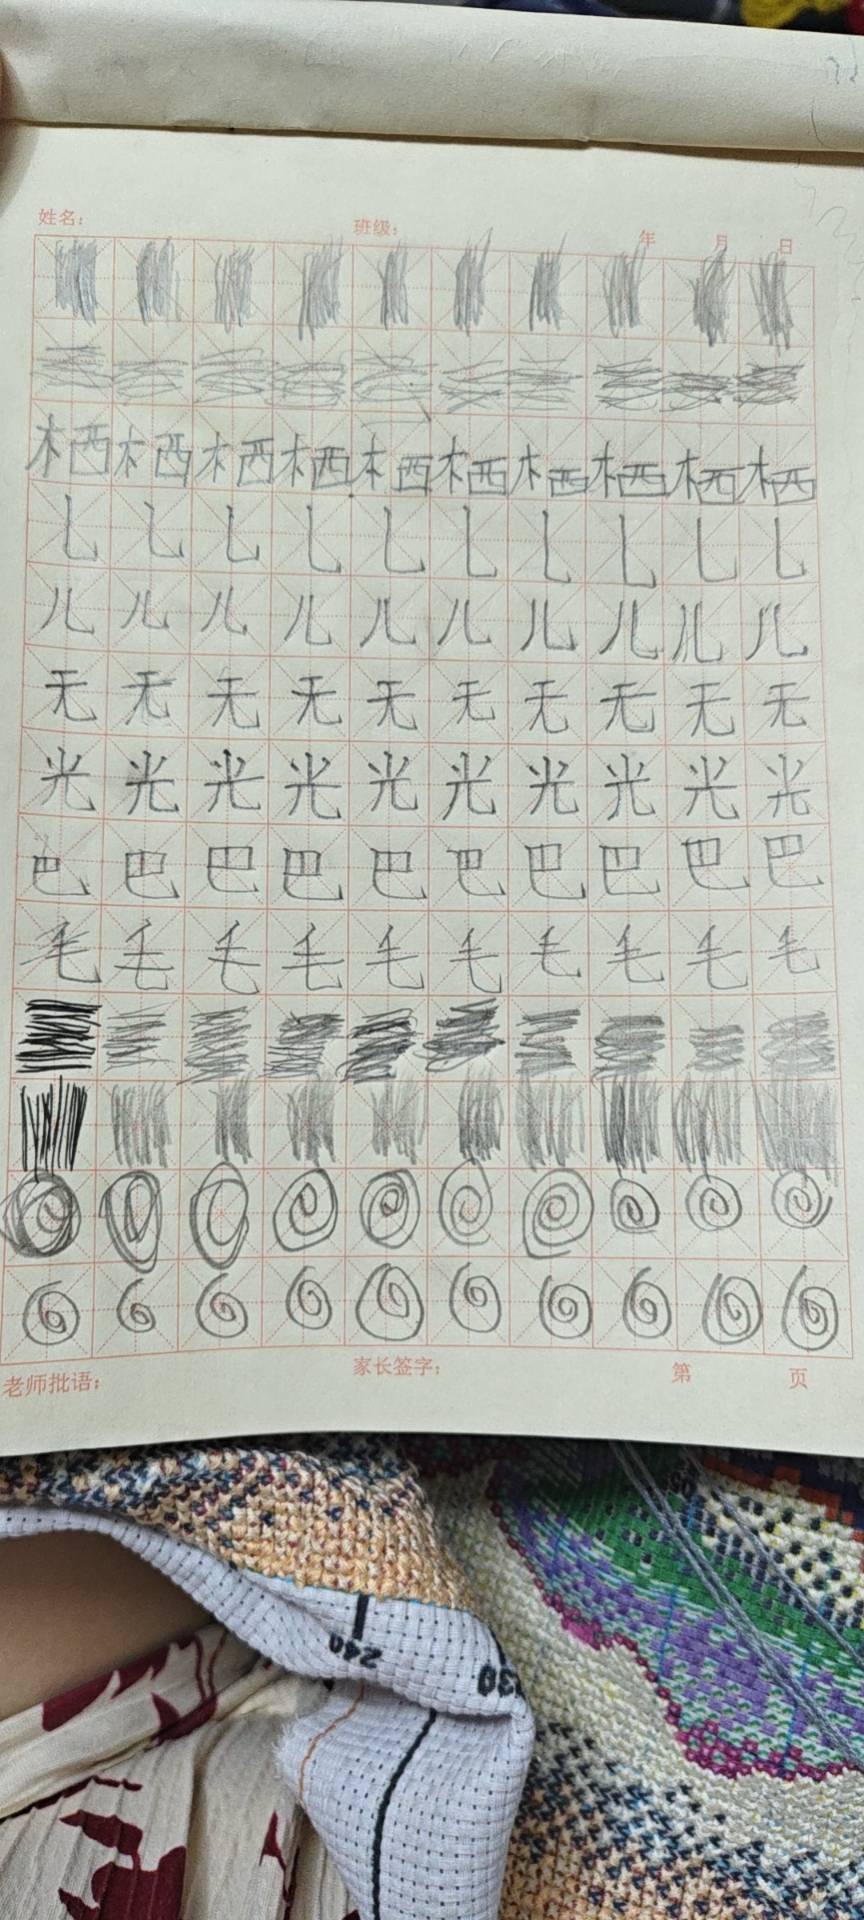 姓名： 班级： 年 月 日
栖 栖 栖 栖 栖 栖 栖 栖 栖 栖
乚 乚 乚 乚 乚 乚 乚 乚 乚 乚
儿 儿 儿 儿 儿 儿 儿 儿 儿 儿
无 无 无 无 无 无 无 无 无 无
光 光 光 光 光 光 光 光 光 光
巴 巴 巴 巴 巴 巴 巴 巴 巴 巴
毛 毛 毛 毛 毛 毛 毛 毛 毛 毛
老师批语： 家长签字： 第 页
240